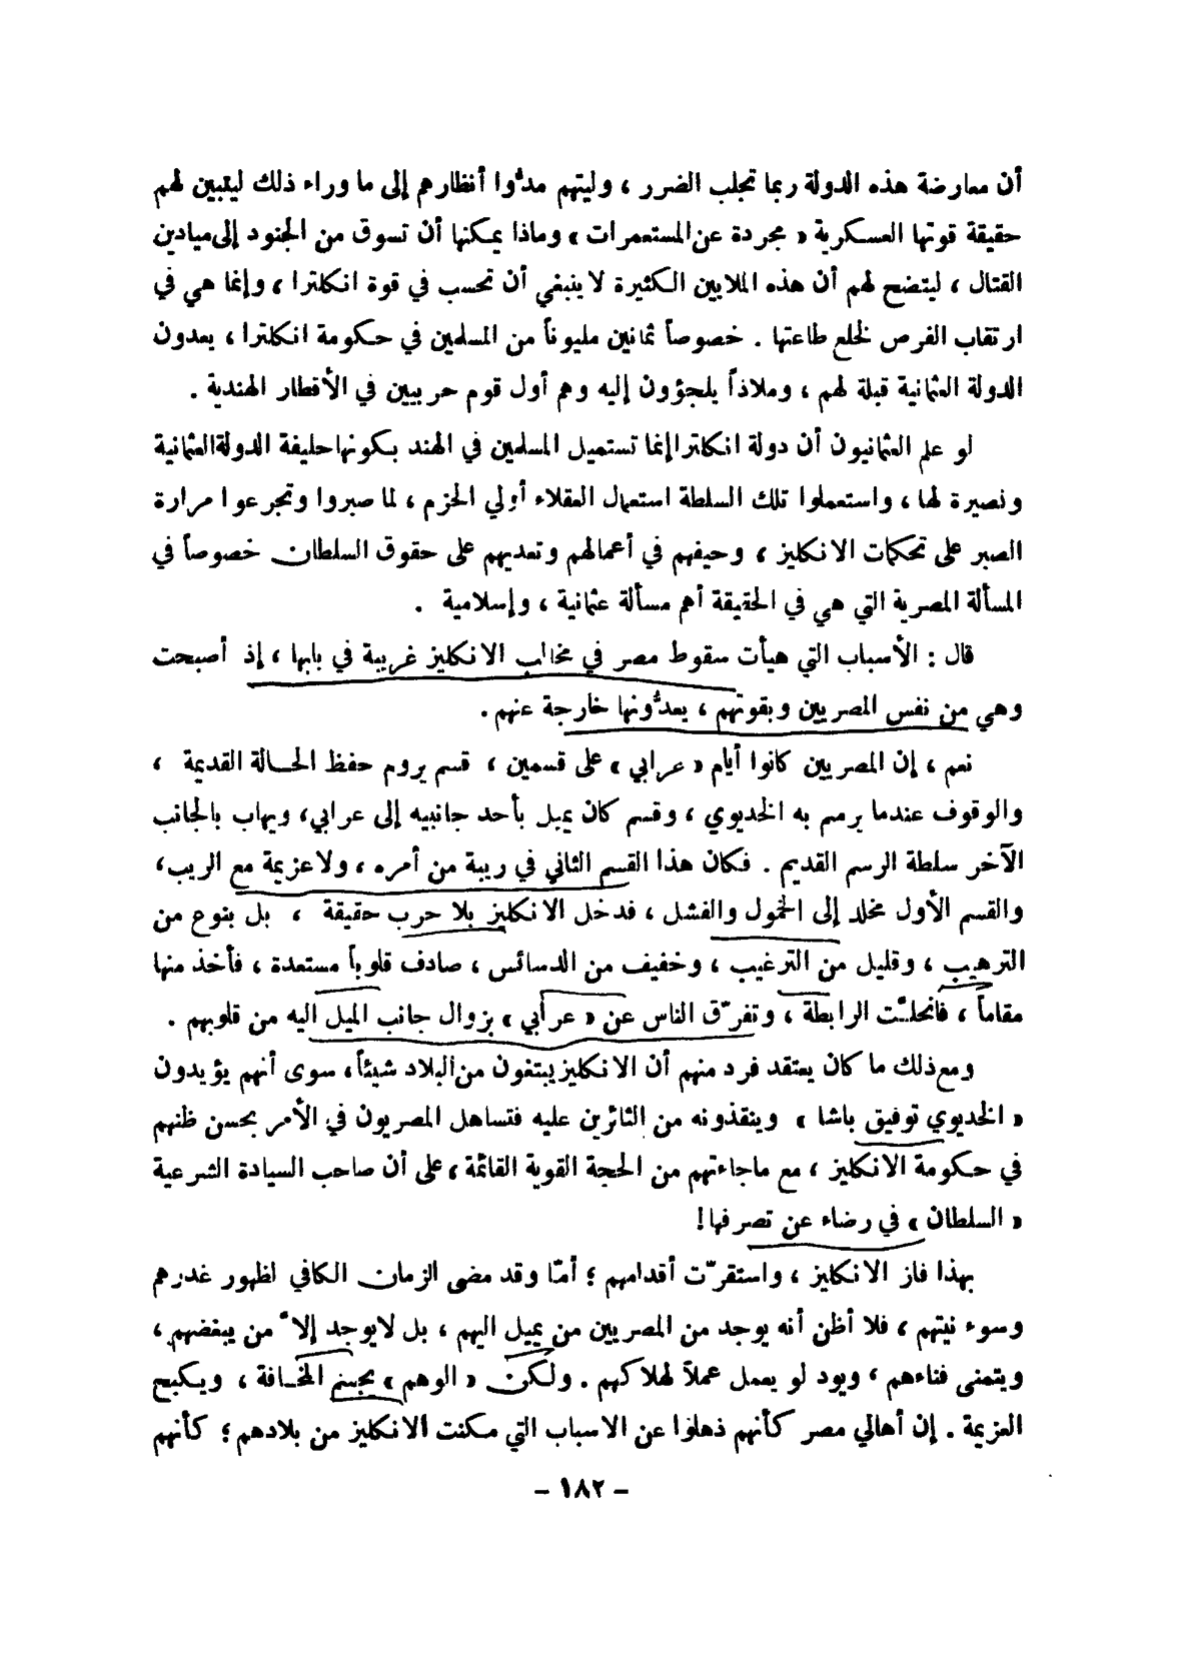 أن معارضة هذه الدولة ربما تجلب الضرر ، وليتهم مدُّوا أنظارهم إلى ما وراء ذلك ليتبين لهم
حقيقة قوتها العسكرية « مجردة عن المستعمرات » وماذا يمكنها أن تسوق من الجنود إلى ميادين
القتال ، ليتضح لهم أن هذه الملايين الكثيرة لا ينبغي أن تحسب في قوة انكلترا ، وإنما هي في
ارتقاب الفرص لخلع طاعتها . خصوصاً ثمانين مليوناً من المسلمين في حكومة انكلترا ، يعدون
الدولة العثمانية قبلة لهم ، وملاذاً يلجؤون إليه وهم أول قوم حربيين في الأقطار الهندية .
لو علم العثمانيون أن دولة انكلترا إنما تستميل المسلمين في الهند بكونها حليفة الدولة العثمانية
ونصيرة لها ، واستعملوا تلك السلطة استعمال العقلاء أولي الحزم ، لما صبروا وتجرعوا مرارة
الصبر على تحكمات الانكليز ، وحيفهم في أعمالهم وتعديهم على حقوق السلطان خصوصاً في
المسألة المصرية التي هي في الحقيقة أهم مسألة عثمانية ، وإسلامية .
قال : الأسباب التي هيأت سقوط مصر في مخالب الانكليز غريبة في بابها ، إذ أصبحت
وهي من نفس المصريين وبقوتهم ، يعدُّونها خارجة عنهم .
نعم ، إن المصريين كانوا أيام « عرابي » على قسمين ، قسم يروم حفظ الحالة القديمة ،
والوقوف عندما يرسم به الخديوي ، وقسم كان يميل بأحد جانبيه إلى عرابي، ويهاب بالجانب
الآخر سلطة الرسم القديم . فكان هذا القسم الثاني في ريبة من أمره ، ولا عزيمة مع الريب،
والقسم الأول مخلد إلى الخمول والفشل ، فدخل الانكليز بلا حرب حقيقة ، بل بنوع من
الترهيب ، وقليل من الترغيب ، وخفيف من الدسائس ، صادف قلوباً مستعدة ، فأخذ منها
مقاماً ، فانحلَّت الرابطة ، وتفرّق الناس عن « عرابي » بزوال جانب الميل اليه من قلوبهم .
ومع ذلك ما كان يعتقد فرد منهم أن الانكليز يبتغون من البلاد شيئاً، سوى أنهم يؤيدون
« الخديوي توفيق باشا » وينقذونه من الثائرين عليه فتساهل المصريون في الأمر بحسن ظنهم
في حكومة الانكليز ، مع ما جاءتهم من الحجة القوية القائمة ، على أن صاحب السيادة الشرعية
« السلطان » في رضاء عن تصرفها !
بهذا فاز الانكليز ، واستقرّت أقدامهم ؛ أمّا وقد مضى الزمان الكافي لظهور غدرهم
وسوء نيتهم ، فلا أظن أنه يوجد من المصريين من يميل اليهم ، بل لا يوجد إلاّ من يبغضهم ،
ويتمنى فناءهم ، ويود لو يعمل عملاً لهلاكهم . ولكن « الوهم » يجسم المخافة ، ويكبح
العزيمة . إن أهالي مصر كأنهم ذهلوا عن الاسباب التي مكنت الانكليز من بلادهم ؛ كأنهم
- ١٨٢ -